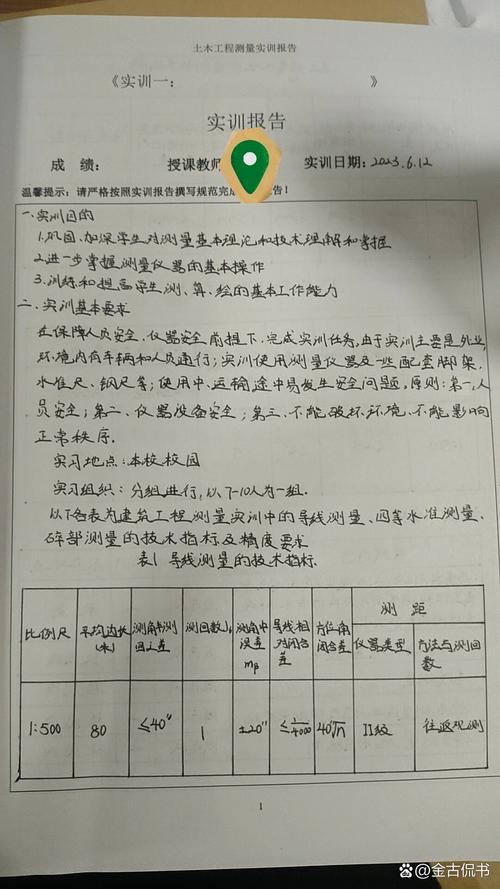 土木工程测量实训报告
《实训一：》
实训报告
成 绩： 授课教师 实训日期：2023.6.12
温馨提示：请严格按照实训报告撰写规范完成 告！
一.实训目的
1.巩固、加深学生对测量基本理论和技术理解和掌握
2.进一步掌握测量仪器的基本操作
3.训练和提高学生测、算、绘的基本工作能力
二.实训基本要求
在保障人员安全、仪器安全前提下.完成实训任务,由于实训主要是外业,
环境内有车辆和人员通行;实训使用测量仪器及一些配套脚架,
水准尺、钢尺等;使用中、运输途中易发生安全问题,原则:第一,人
员安全;第二、仪器设备安全;第三、不能破坏环境、不能影响
正常秩序.
实习地点:本校校园
实习组织:分组进行,以7-10人为一组.
以下各表为建筑工程测量实训中的导线测量、四等水准测量、
碎部测量的技术指标及精度要求
表1 导线测量的技术指标.
比例尺 平均边长(米) 测角半测回之差 测回数 测角中误差mβ 导线相对闭合差 方位角闭合差 测距
仪器类型 方法与测回数
1:500 80 ≤40" 1 ±20" ≤1/4000 40"√n II级 往返观测
1
@金古侃书